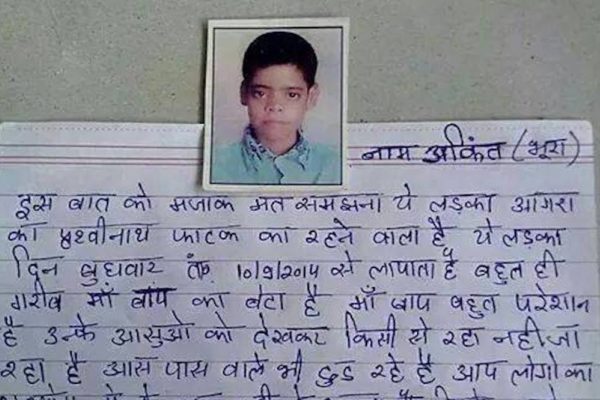 नाम अंकित (भूरा)
इस बात को मजाक मत समझना ये लड़का आगरा
का पृथ्वीनाथ फाटक का रहने वाला है ये लड़का
दिन बुधवार ता० 10/9/2014 से लापाता है बहुत ही
गरीब माँ बाप का बेटा है माँ बाप बहुत परेशान
है उनके आसुओ को देखकर किसी से रहा नही जा
रहा है आस पास वाले भी ढुड रहे है आप लोगो का